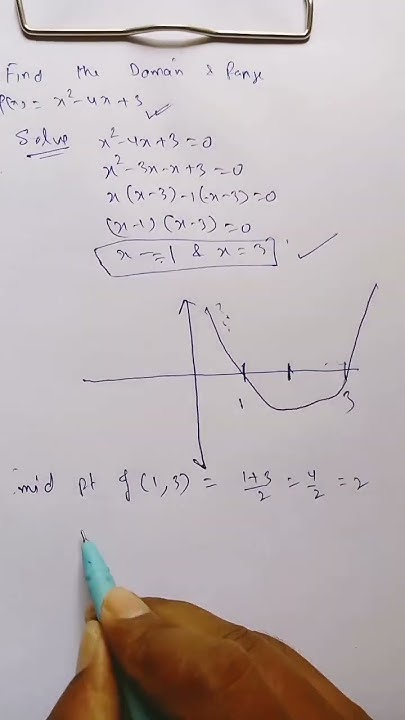 Find the Domain & Range
f(x) = x² - 4x + 3
Solve x² - 4x + 3 = 0
x² - 3x - x + 3 = 0
x (x - 3) - 1 (x - 3) = 0
(x - 1) (x - 3) = 0
x = 1 & x = 3
1 3
mid pt of (1, 3) = 1+3/2 = 4/2 = 2